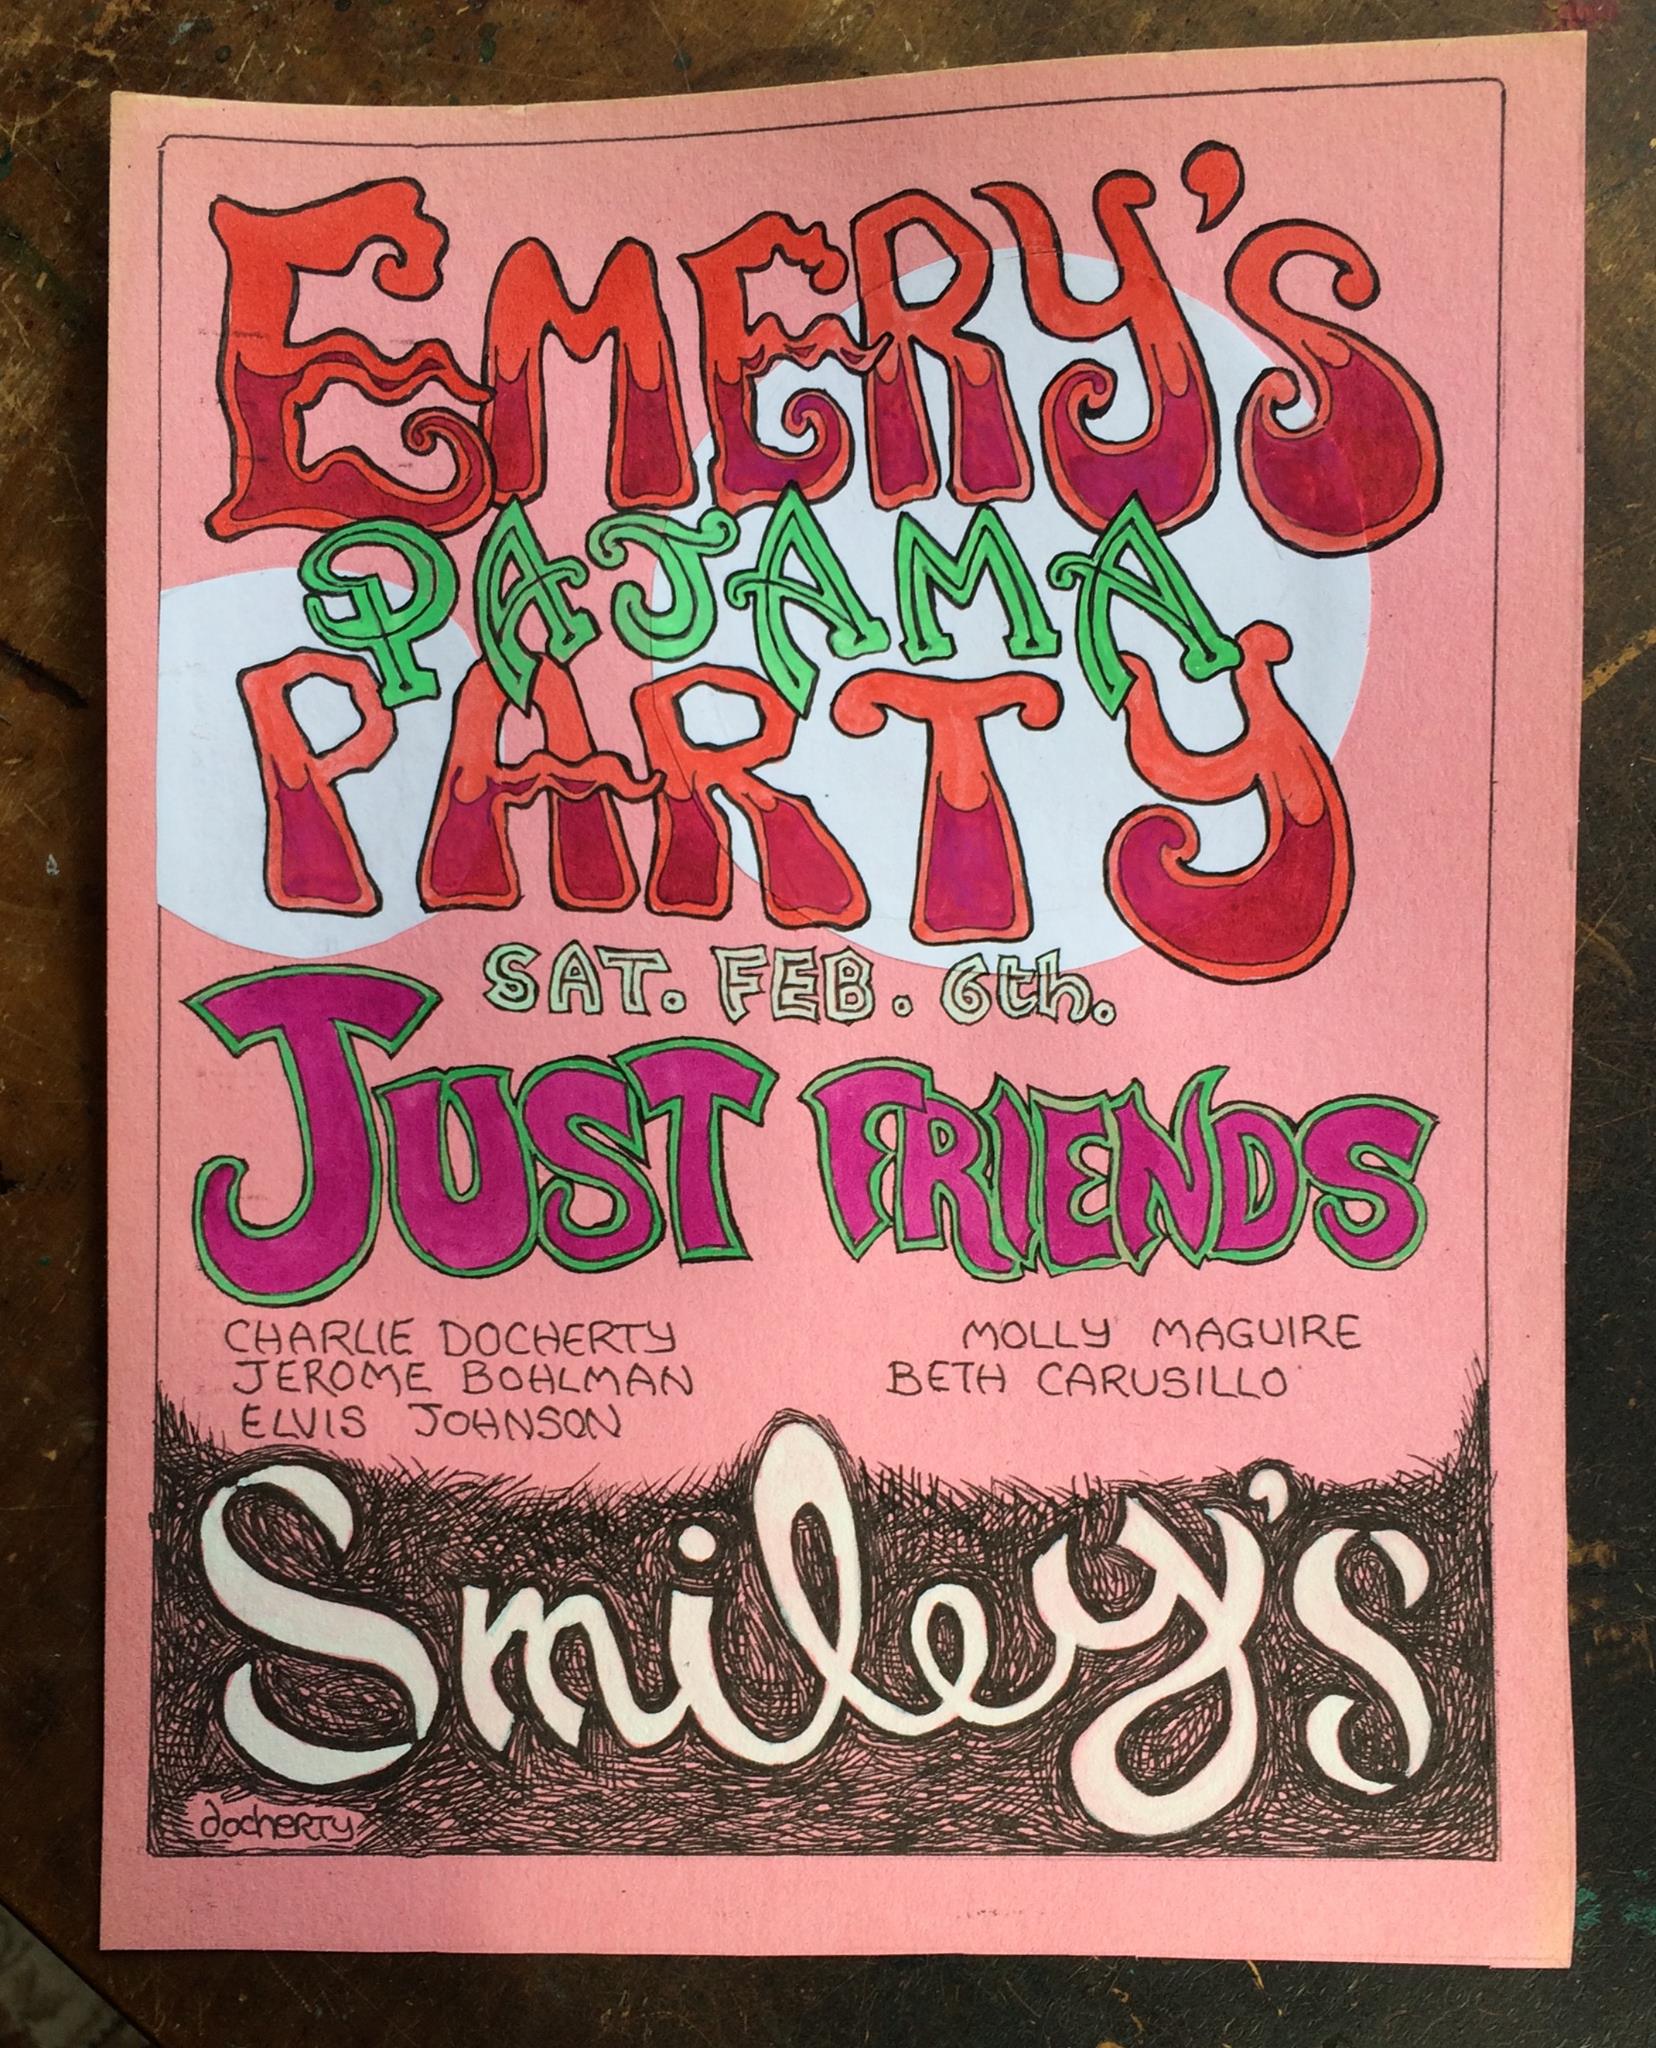 EMERY'S
PAJAMA
PARTY
SAT. FEB. 6th.
JUST FRIENDS
CHARLIE DOCHERTY MOLLY MAGUIRE
JEROME BOHLMAN BETH CARUSILLO
ELVIS JOHNSON
Smiley's
docherty